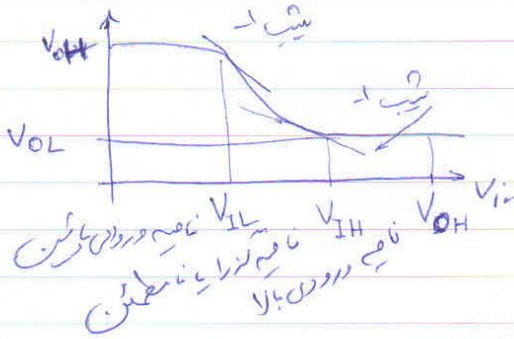 شیب -1
V_OH
شیب -1
V_OL
V_in
V_IL V_IH V_OH
ناحیه ورودی پائین
ناحیه گذرا یا نامطمئن
ناحیه ورودی بالا